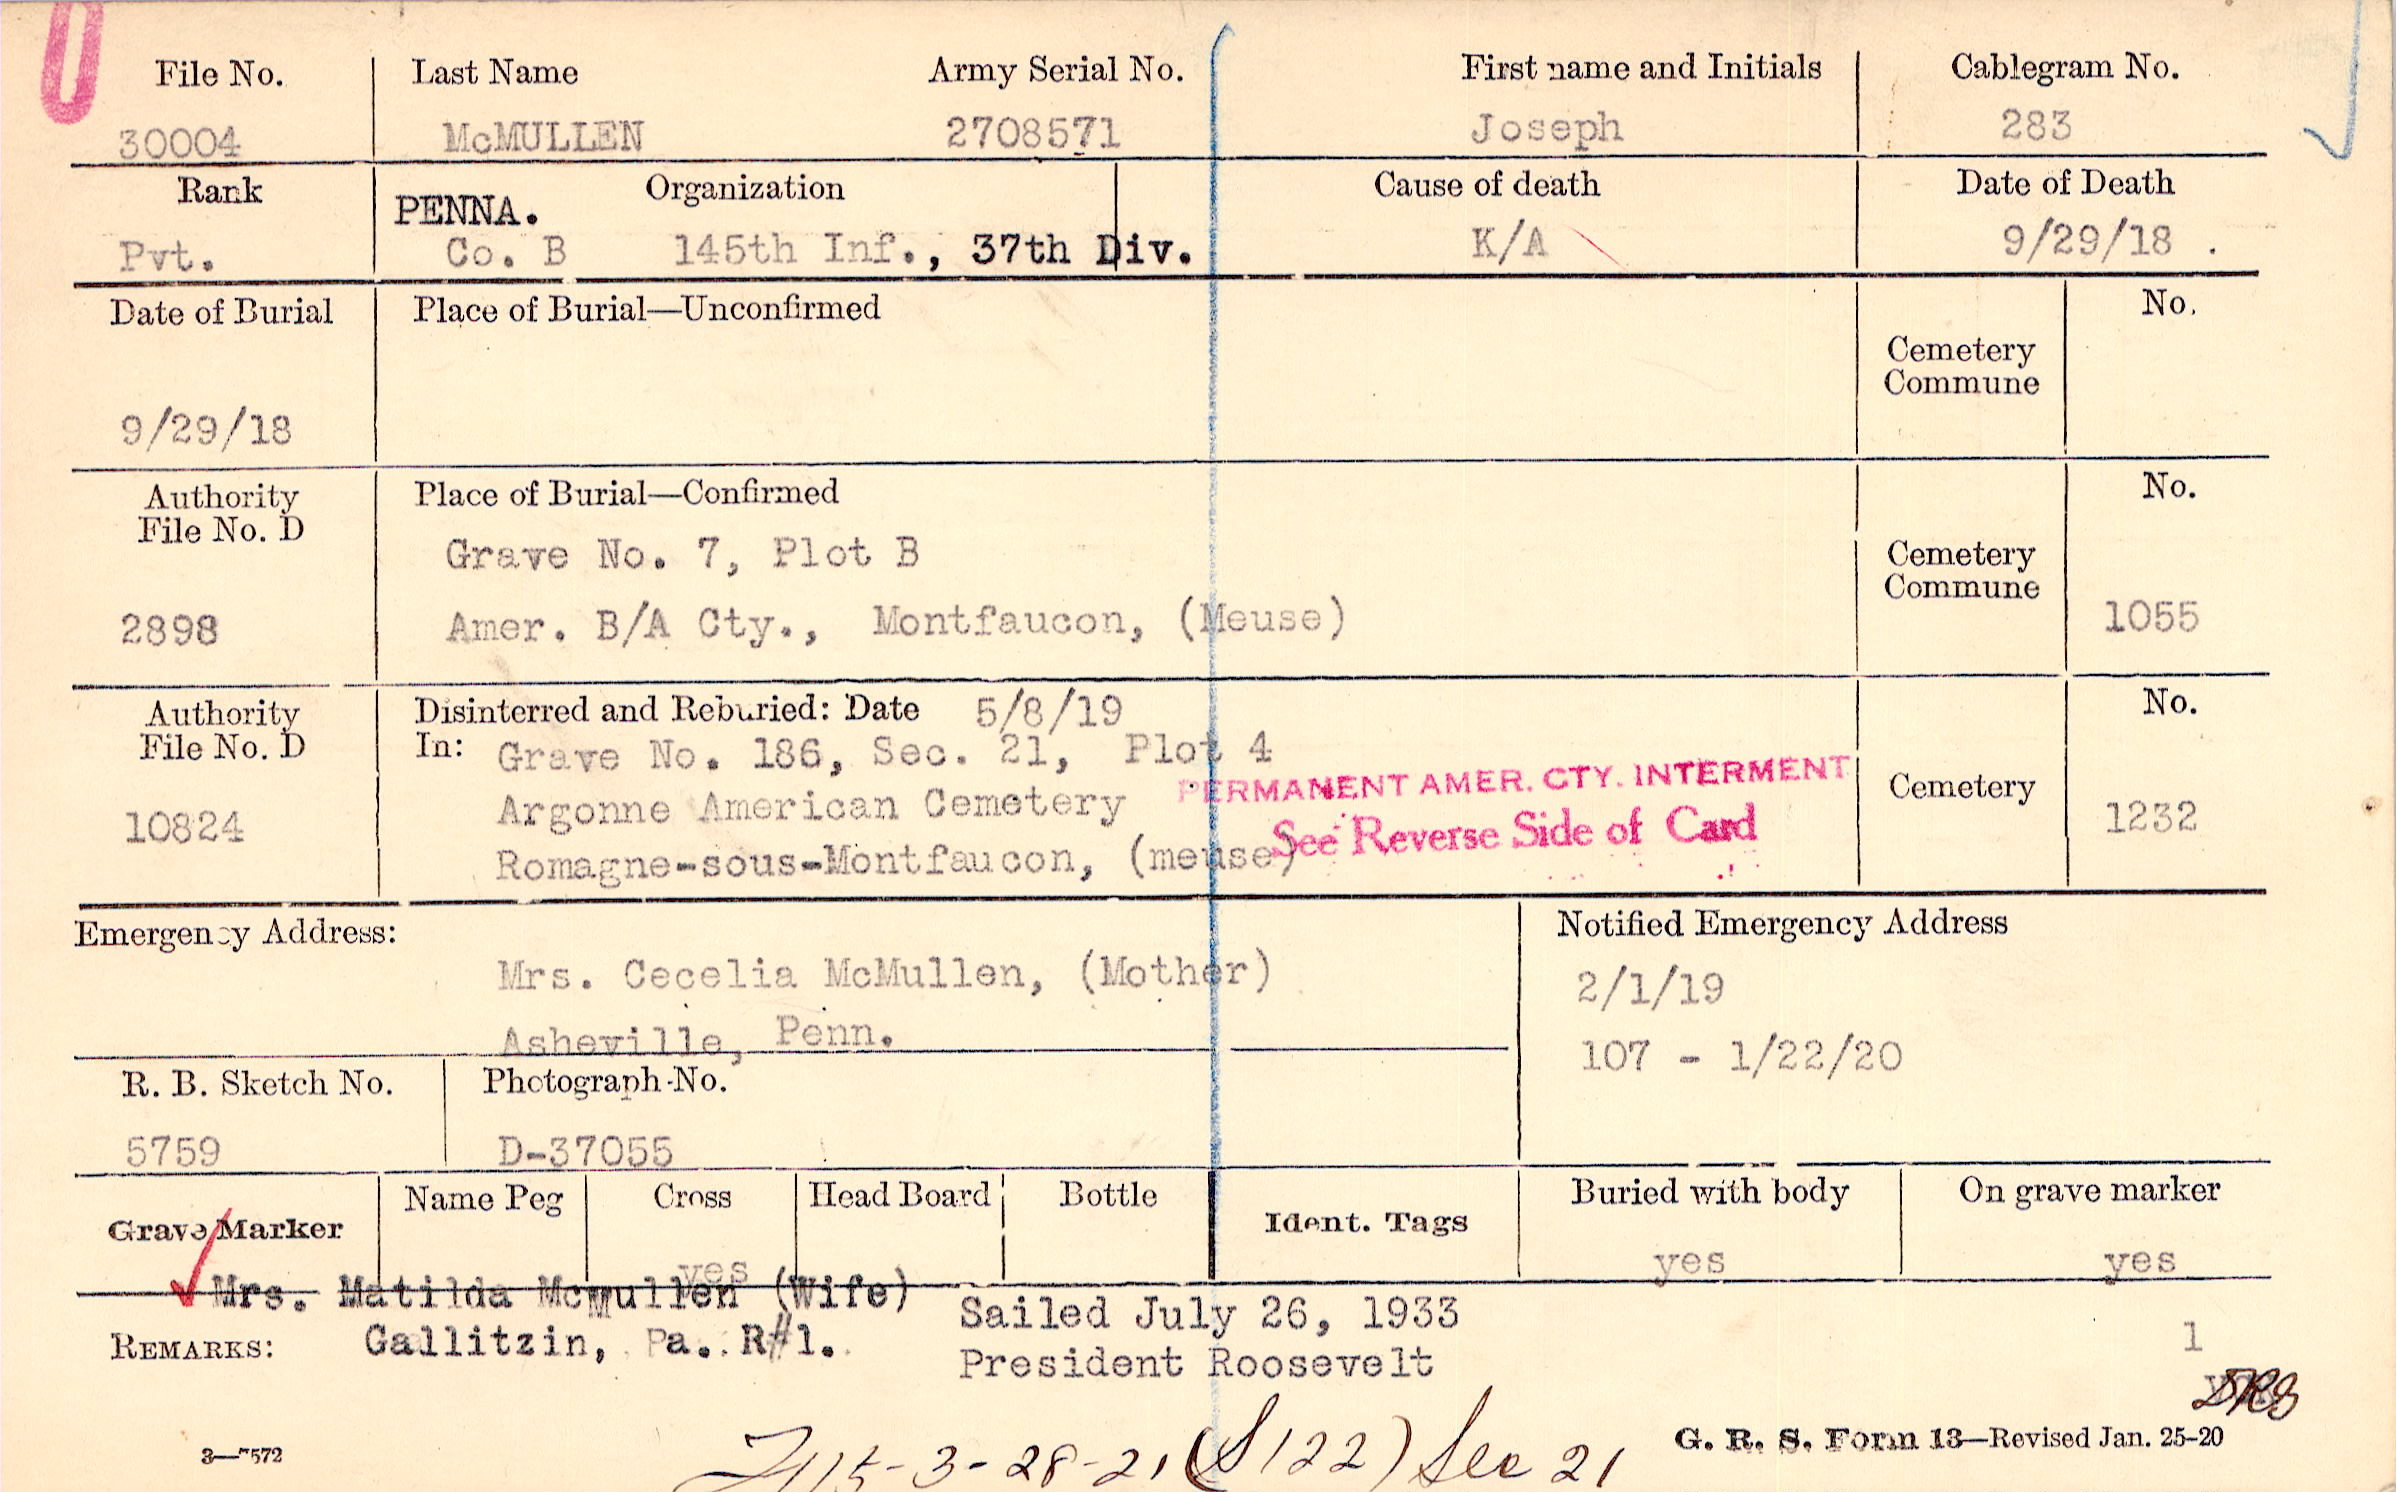 File No. Last Name Army Serial No. First name and Initials Cablegram No.
30004 McMULLEN 2708571 Joseph 283
Rank Organization Cause of death Date of Death
PENNA.
Pvt. Co. B 145th Inf., 37th Div. K/A 9/29/18 .
Date of Burial Place of Burial—Unconfirmed No.
Cemetery
Commune
9/29/18
Authority Place of Burial—Confirmed No.
File No. D
Grave No. 7, Plot B Cemetery
Commune
2898 Amer. B/A Cty., Montfaucon, (Meuse) 1055
Authority Disinterred and Reburied: Date 5/8/19 No.
File No. D In: Grave No. 186, Sec. 21, Plot 4
PERMANENT AMER. CTY. INTERMENT
10824 Argonne American Cemetery Cemetery 1232
See Reverse Side of Card
Romagne-sous-Montfaucon, (meuse)
Emergency Address: Notified Emergency Address
Mrs. Cecelia McMullen, (Mother) 2/1/19
Asheville, Penn. 107 - 1/22/20
R. B. Sketch No. Photograph No.
5759 D-37055
Grave Marker Name Peg Cross Head Board Bottle Ident. Tags Buried with body On grave marker
yes yes yes
Mrs. Matilda Mcmullen (Wife) Sailed July 26, 1933
REMARKS: Gallitzin, Pa. R#1. President Roosevelt 1
3—7572 G. R. S. Form 13—Revised Jan. 25-20
3-28-21 (S122) Sec 21